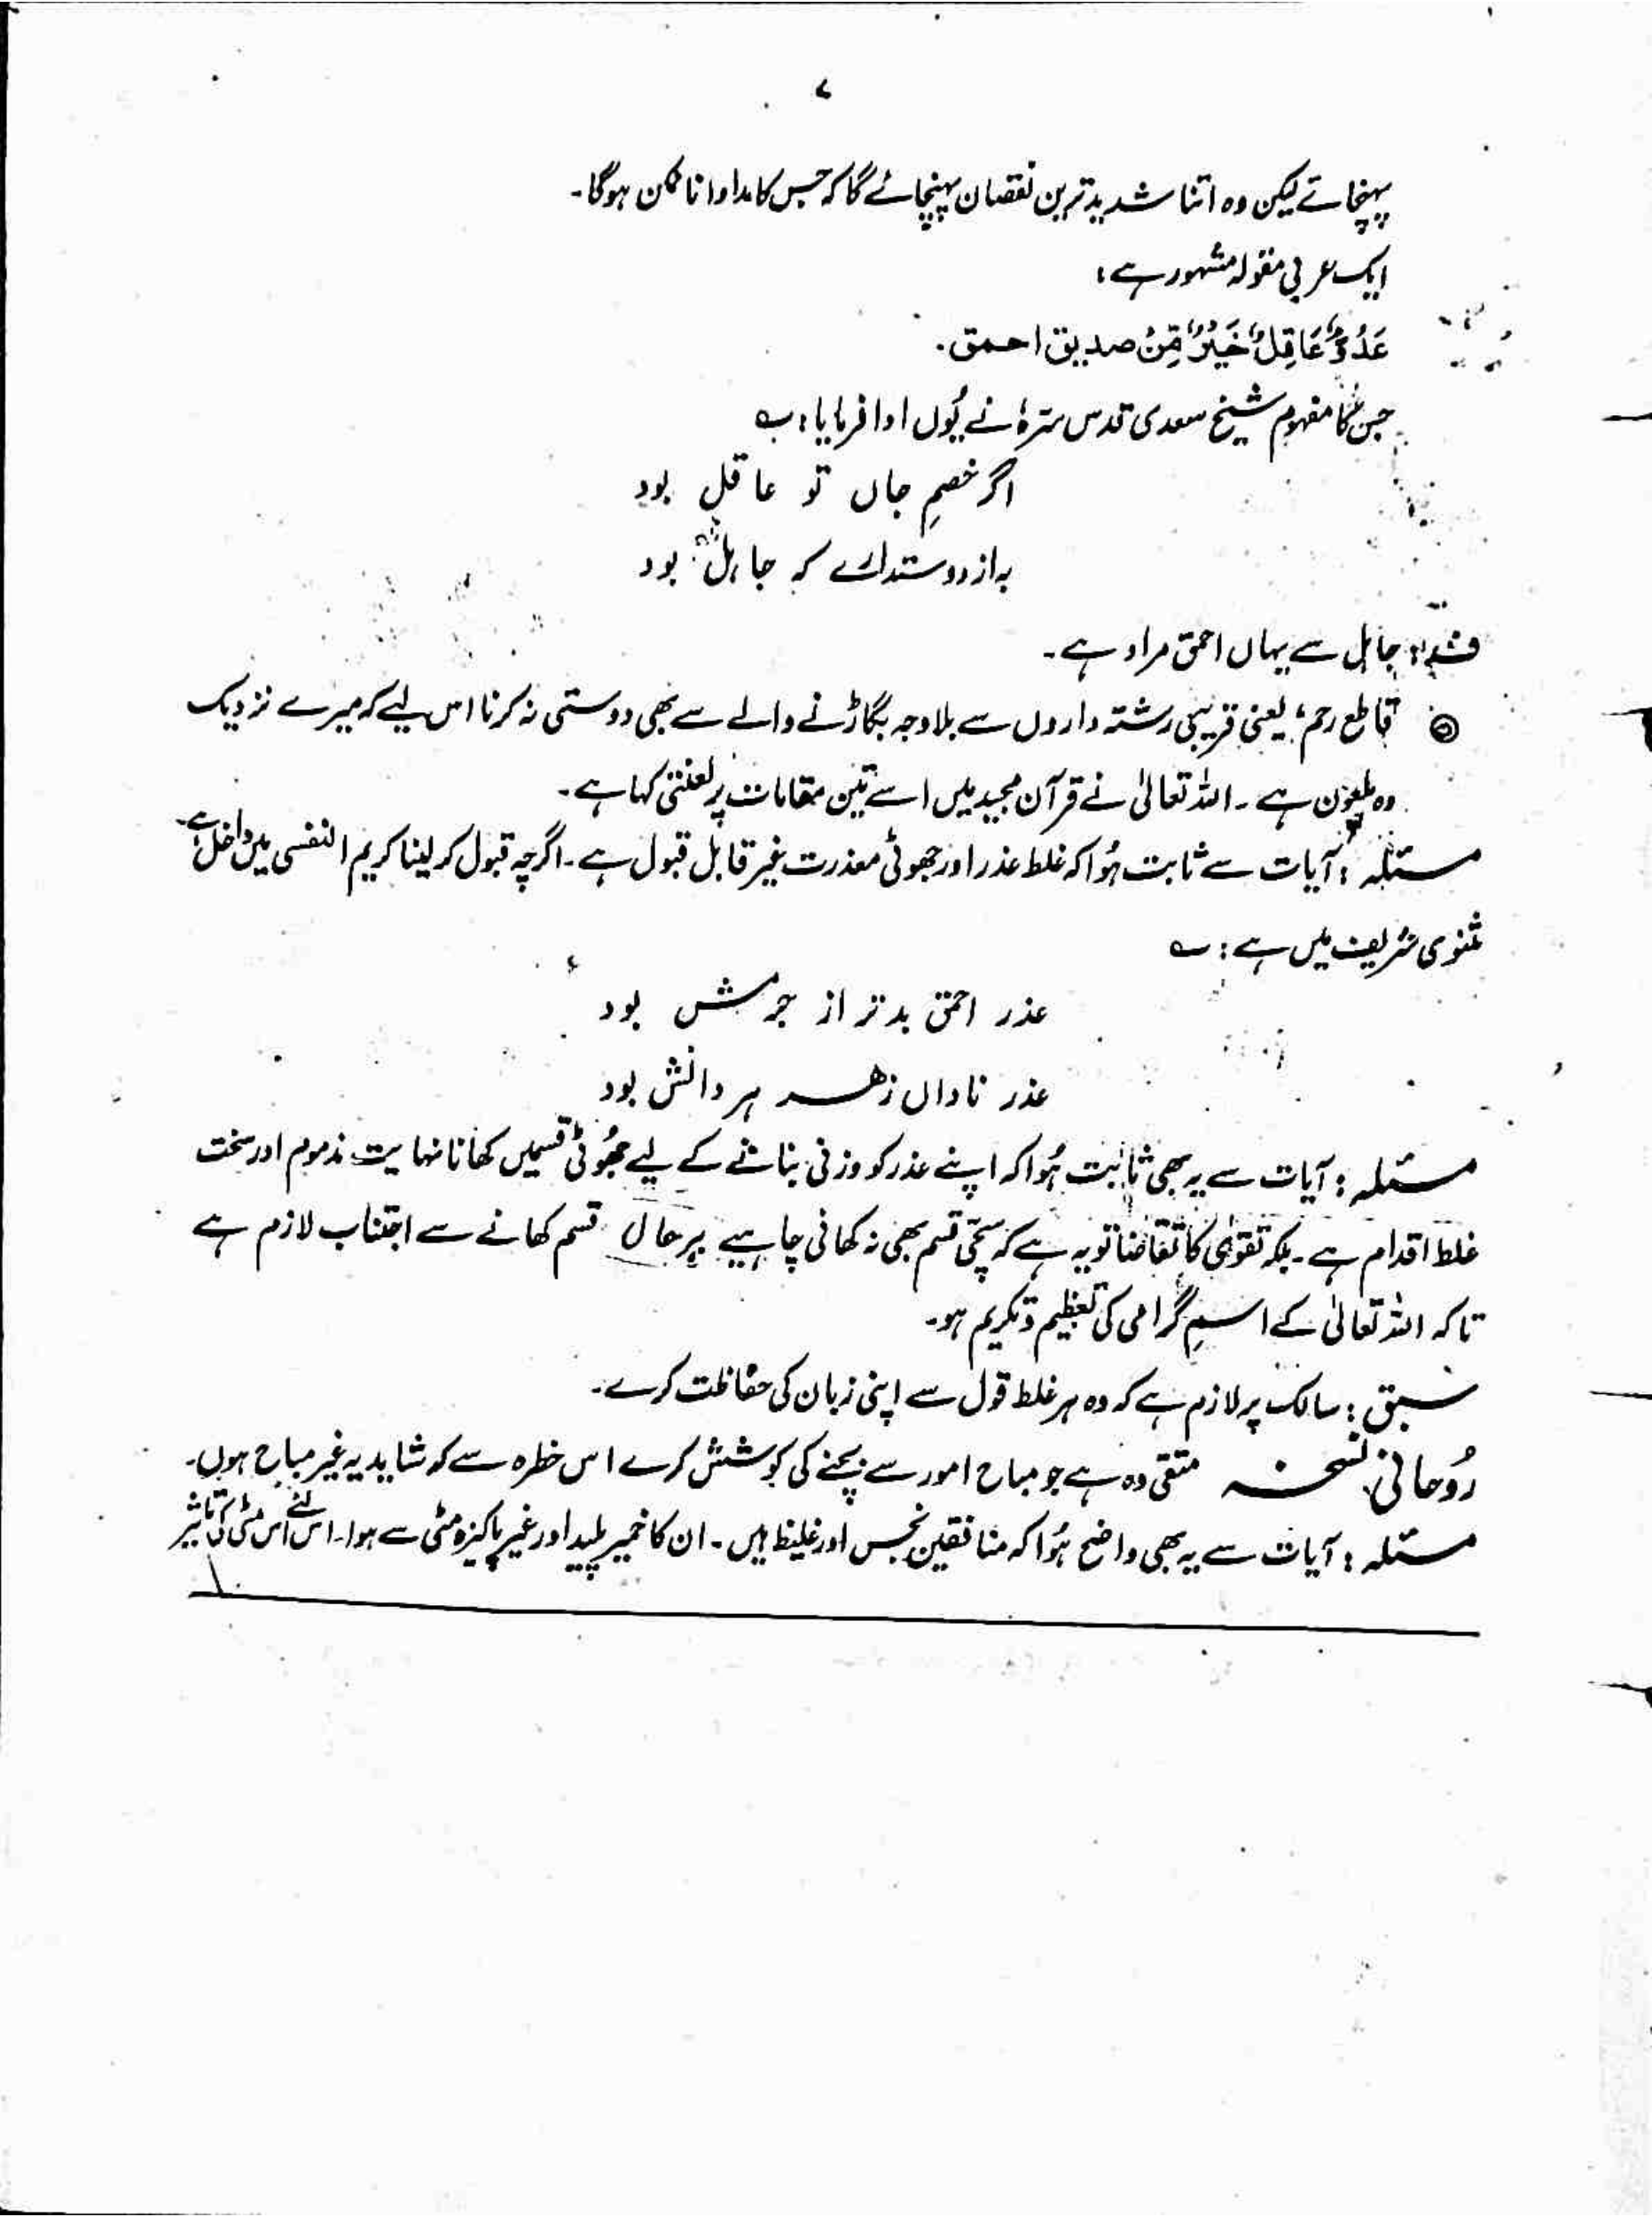 ۷
پہنچاتے لیکن وہ اتنا شدید ترین نقصان پہنچائے گا کہ جس کا مداوا ناممکن ہوگا۔
ایک عربی مقولہ مشہور ہے :
عَدُوٌّ عَاقِلٌ خَيْرٌ مِّنْ صدیق احمق .
جس کا مفہوم شیخ سعدی قدس سرہٗ نے یُوں ادا فرمایا : ؎
اگر خصمِ جاں تو عاقل بود
بہ از دوستدارے کہ جاہل بود
ف : جاہل سے یہاں احمق مراد ہے ۔
۵ قاطع رحم ، یعنی قریبی رشتہ داروں سے بلاوجہ بگاڑنے والے سے بھی دوستی نہ کرنا اس لیے کہ میرے نزدیک
وہ ملعون ہے ۔ اللہ تعالیٰ نے قرآن مجید میں اسے تین مقامات پر لعنتی کہا ہے ۔
مسئلہ : آیات سے ثابت ہُوا کہ غلط عذر اور جھوٹی معذرت غیر قابل قبول ہے ۔ اگرچہ قبول کرلینا کریم النفسی میں داخل ہے ۔
مثنوی شریف میں ہے : ؎
عذر احمق بدتر از جرمش بود
عذر ناداں زہر ہر دانش بود
مسئلہ : آیات سے یہ بھی ثابت ہُوا کہ اپنے عذر کو وزنی بنانے کے لیے جھُوٹی قسمیں کھانا نہایت مذموم اور سخت
غلط اقدام ہے ۔ بلکہ تقوٰی کا تقاضا تو یہ ہے کہ سچّی قسم بھی نہ کھانی چاہیے ہرحال قسم کھانے سے اجتناب لازم ہے
تاکہ اللہ تعالیٰ کے اسمِ گرامی کی تعظیم و تکریم ہو۔
سبق : سالک پر لازم ہے کہ وہ ہر غلط قول سے اپنی زبان کی حفاظت کرے ۔
رُوحانی نسخہ متقی وہ ہے جو مباح امور سے بچنے کی کوشش کرے اس خطرہ سے کہ شاید یہ غیر مباح ہوں ۔
مسئلہ : آیات سے یہ بھی واضح ہُوا کہ منافقین نجس اور غلیظ ہیں ۔ ان کا خمیر پلید اور غیر پاکیزہ مٹی سے ہوا ۔ اس لئے اس مٹی کی تاثیر